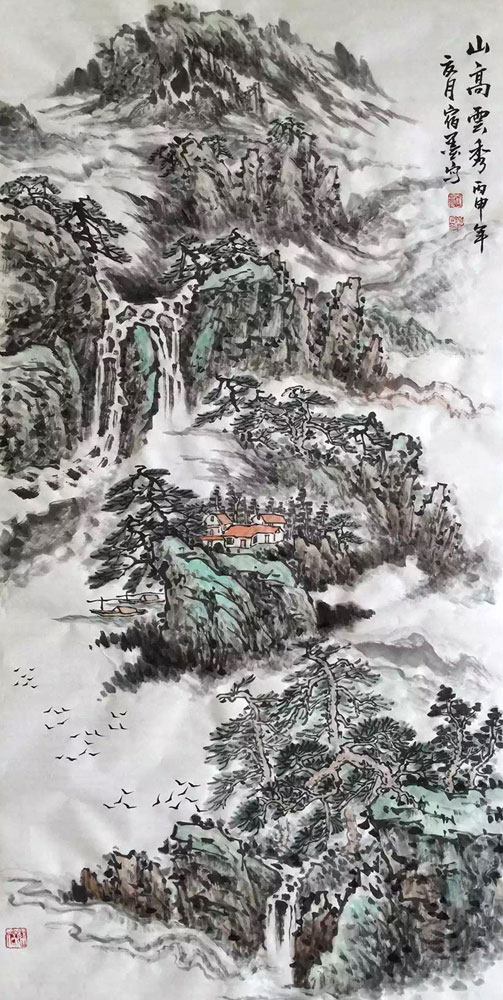 山高雲秀丙申年
亥月宿墨写